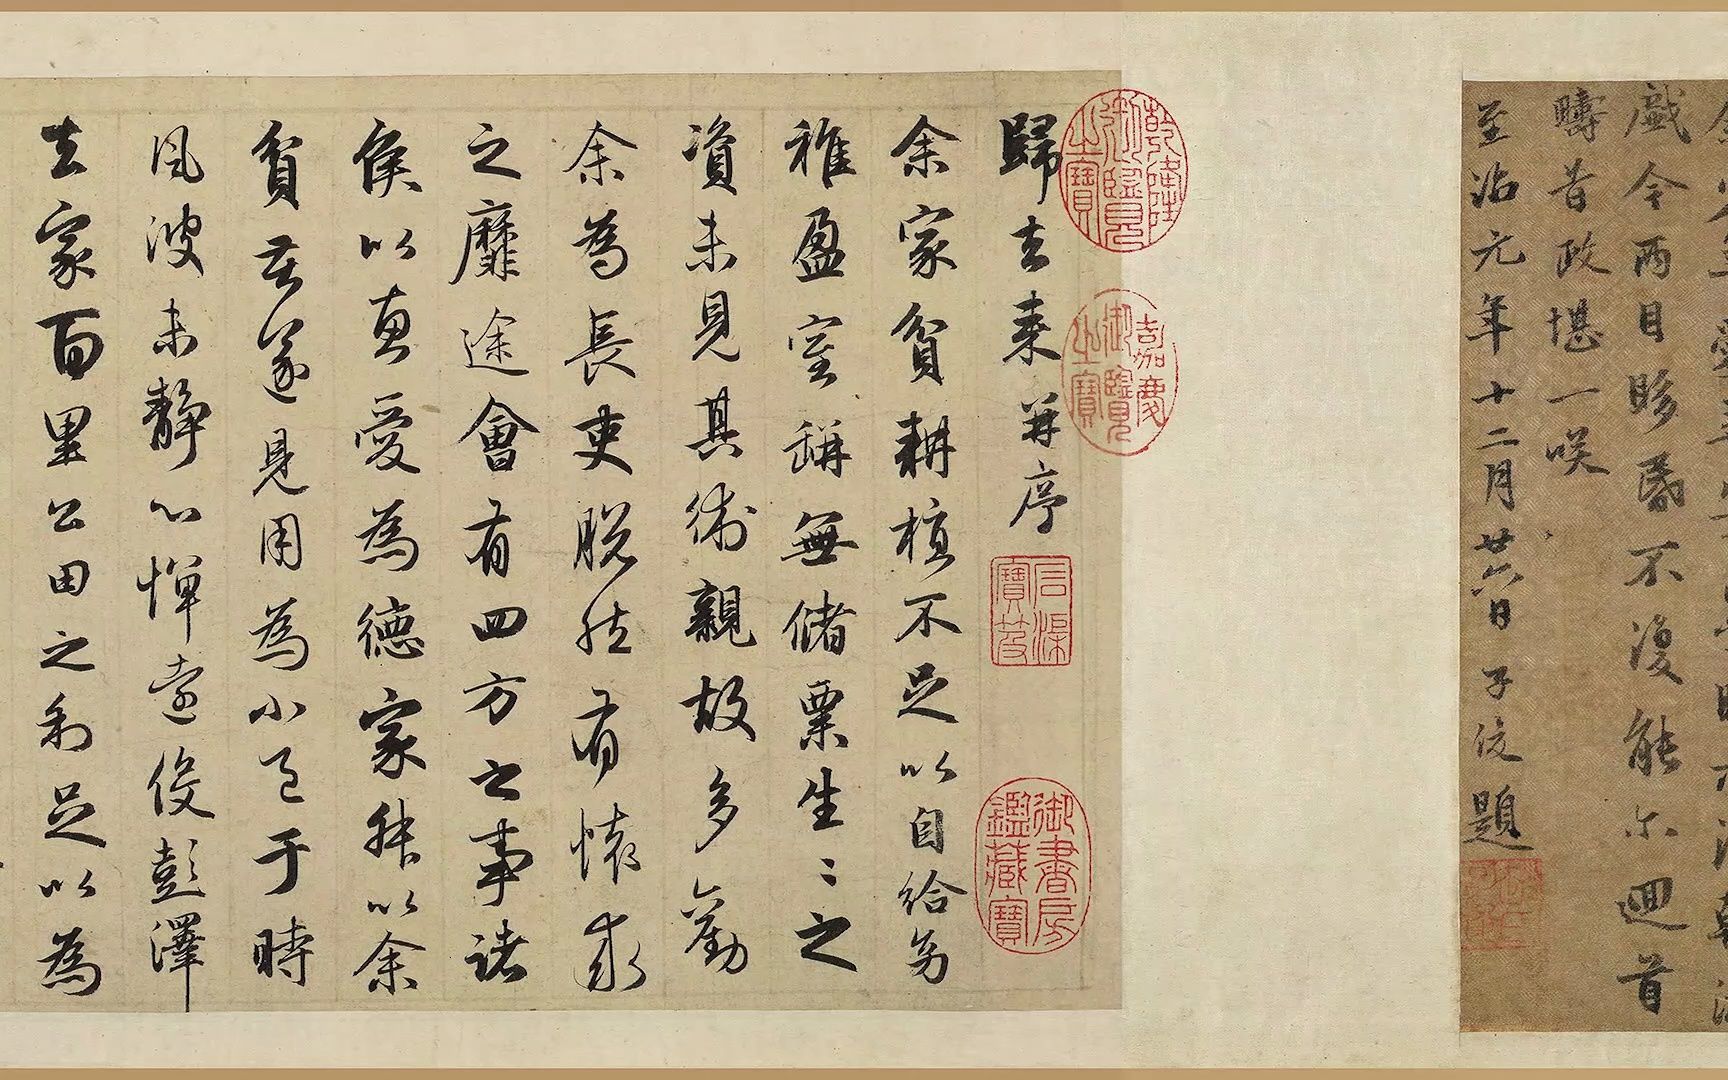 戲今兩目眵昏不復能尔迴首
疇昔政堪一咲
至治元年十二月廿六日子俊題
乾隆御覽之寶
嘉慶御覽之寶
歸去來并序
石渠寶笈
御書房鑑藏寶
余家貧耕植不足以自給幼
稚盈室缾無儲粟生〻之
資未見其術親故多勸
余為長吏脫然有懷求
之靡途會有四方之事諸
侯以惠愛為德家叔以余
貧苦遂見用為小邑于時
風波未靜心憚遠役彭澤
去家百里公田之利足以為